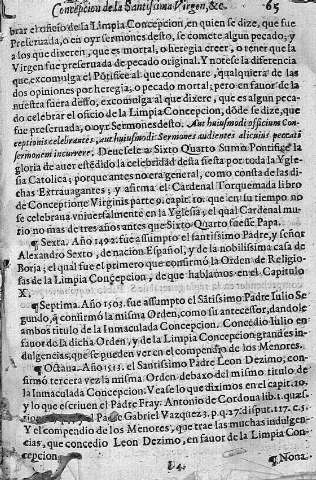 Concepcion de la Santissima Virgen, &c. 65
brar el oficio de la Limpia Concepcion, en quien se dize, que fue
Preseruada, o en oyr sermones desto, se comete algun pecado; y
a los que dixeren, que es mortal, o heregia creer, o tener que la
Virgen fue preseruada de pecado original. Y notese la diferencia
que excomulga el Põtifice al que condenare, qualquiera de las
dos opiniones por heregia, o pecado mortal; pero en fauor de la
nuestra fuera desso, excomulga al que dixere, que es algun peca-
do celebrar el oficio de la Limpia Concepcion, dõde se dize, que
fue preseruada, o oyr Sermones desto. Aut huiusmodi officium Con-
ceptionis celebrantes, aut huiusmodi Sermones audientes alicuius peccati
sermonem incurrere; Deuesele a Sixto Quarto Sumo Pontifice la
gloria de auer estẽdido la celebridad desta fiesta por toda la Ygle-
sia Catolica; porque antes no era general, como consta de las di-
chas Extrauagantes; y afirma el Cardenal Torquemada libro
de Conceptione Virginis parte 9. capit. 10. que en su tiempo no
se celebraua vniuersalmente en la Yglesia; el qual Cardenal mu-
rio no mas de tres años antes que Sixto Quarto fuesse Papa.
¶ Sexta. Año 1492. fue assumpto el santissimo Padre, y señor
Alexandro Sexto, de nacion Español, y de la nobilissima casa de
Borja; el qual fue el primero que confirmò la Orden de Religio-
sas de la Limpia Concepcion, de que hablamos en el Capitulo
X.
¶ Septima. Año 1503. fue assumpto el Sãtissimo Padre Iulio Se-
gundo, q̃ confirmò la misma Orden, como su antecessor, dandole
ambos titulo de la Inmaculada Concepcion. Concedio Iulio en
fauor de la dicha Orden, y de la Limpia Concepcion grandes in-
dulgencias, que se pueden ver en el compendio de los Menores.
¶ Octaua. Año 1513. el Santissimo Padre Leon Dezimo, con-
firmò tercera vez la misma Orden debaxo del mismo titulo de
la Inmaculada Concepcion. Vease lo que diximos en el capit. 10.
y lo que escriuen el Padre Fray. Antonio de Cordoua lib. 1. quæs-
el Padre Gabriel Vazquez 3. p. q. 27. disput. 117. c. 5.
Y el compendio de los Menores, que trae las muchas indulgen-
cias, que concedio Leon Dezimo, en fauor de la Limpia Con-
cepcion.
I 4. ¶ Nona.